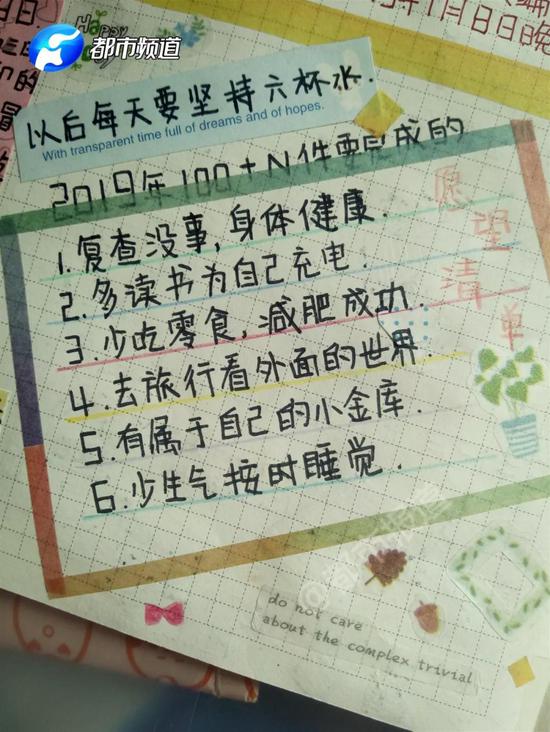 都市频道
Happy
以后每天要坚持六杯水.
With transparent time full of dreams and of hopes.
2019年100+N件要完成的
愿望清单
1.复查没事,身体健康.
2.多读书为自己充电.
3.少吃零食,减肥成功.
4.去旅行看外面的世界.
5.有属于自己的小金库.
6.少生气按时睡觉.
@都市频道
do not care
about the complex trivial